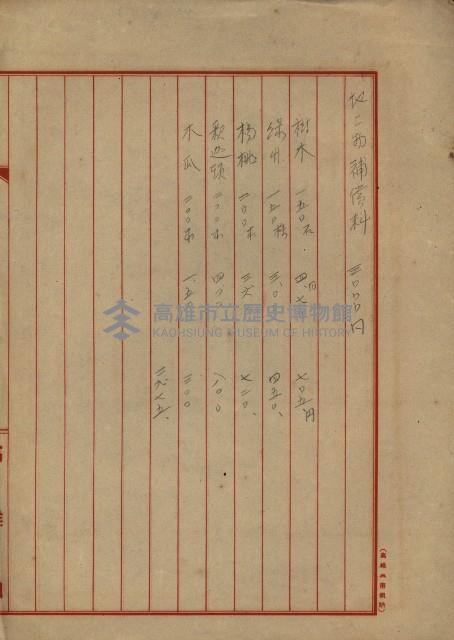 地上物補償料 三〇〇〇円
樹木 一五〇石. 四.七 七〇五円
綠竹 一五〇株 三.〇 四五〇.
楊桃 二〇〇本 三.六 七二〇.
釈迦頭 二〇〇本 四.〇 八〇〇
木瓜 二〇〇本 一.五 三〇〇
高雄市立歷史博物館
KAOHSIUNG MUSEUM OF HISTORY